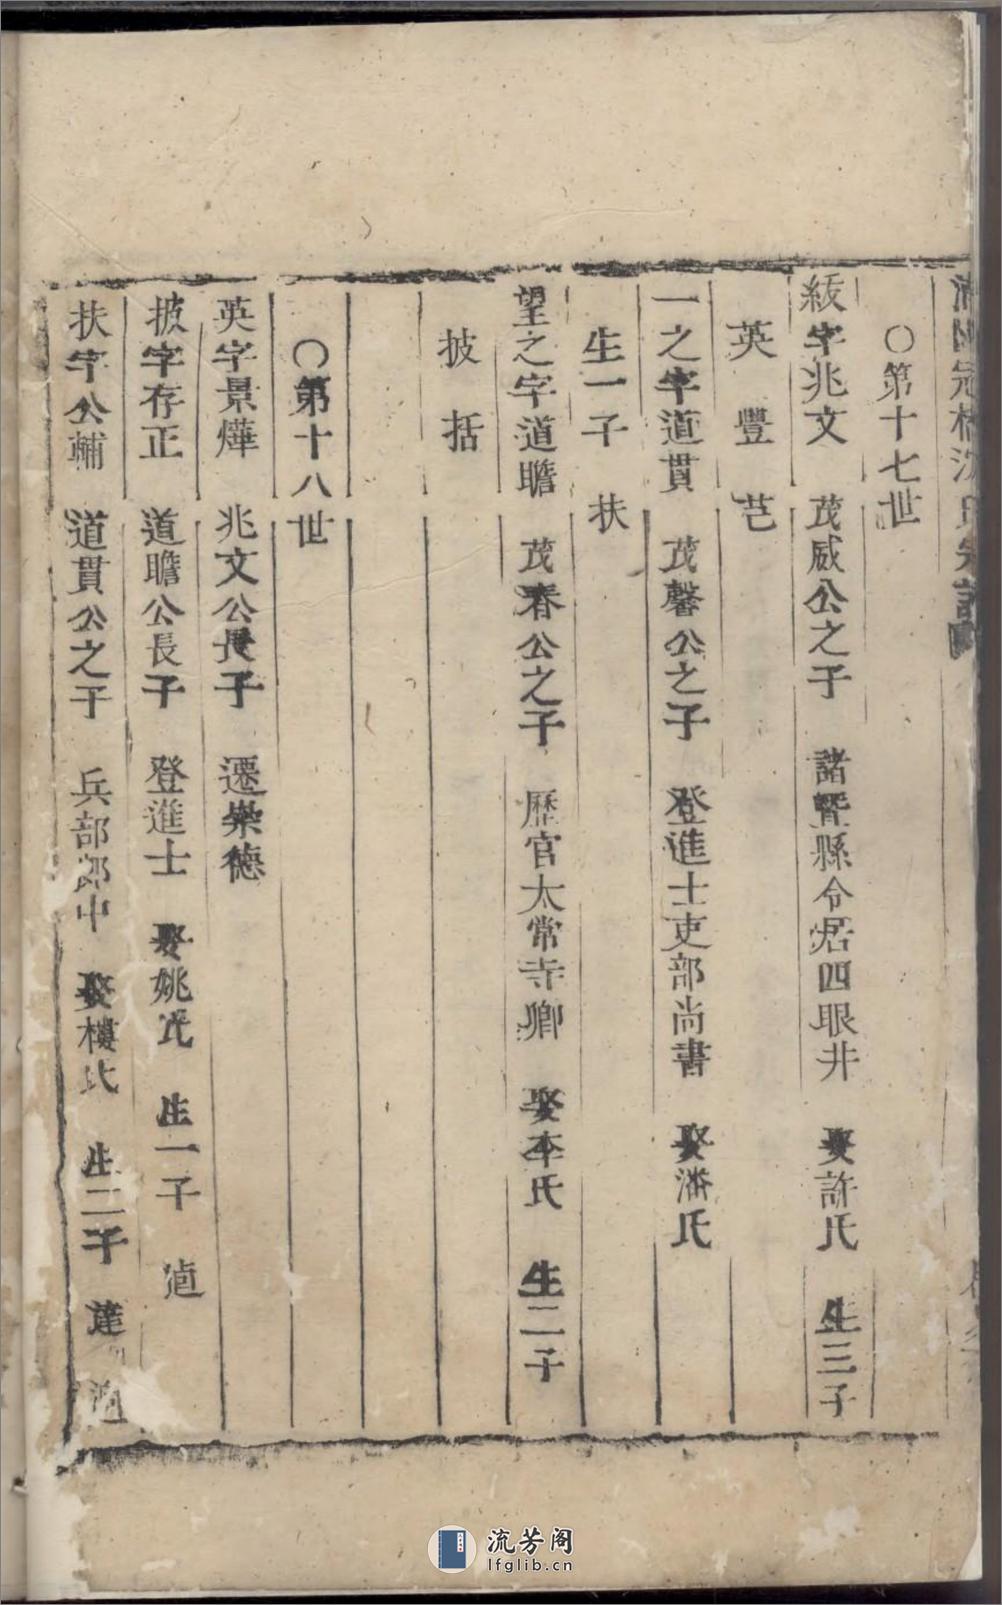 ○第十七世
綾字兆文 茂威公之子 諸暨縣令居四眼井 娶許氏 生三子
英 豐 芑
一之字道貫 茂馨公之子 登進士吏部尚書 娶潘氏
生一子 扶
望之字道瞻 茂春公之子 歷官太常寺卿 娶李氏 生二子
披 括
○第十八世
英字景燁 兆文公長子 遷崇德
披字存正 道瞻公長子 登進士 娶姚氏 生一子
扶字公輔 道貫公之子 兵部郎中 娶樓氏 生二子 蓮
流芳阁
lfglib.cn